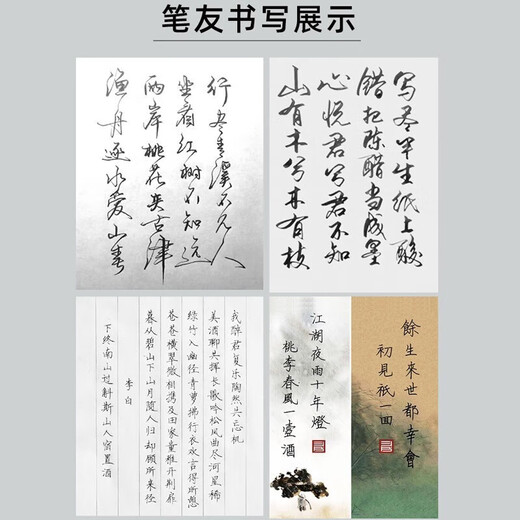 笔友书写展示
渔舟逐水爱山春
两岸桃花夹古津
坐看红树不知远
行尽青溪不见人
山有木兮木有枝
心悦君兮君不知
错把陈醋当成墨
写尽半生纸上酸
下终南山过斛斯山人宿置酒
李白
暮从碧山下山月随人归却顾所来径
苍苍横翠微相携及田家童稚开荆扉
绿竹入幽径青萝拂行衣欢言得所憩
美酒聊共挥长歌吟松风曲尽河星稀
我醉君复乐陶然共忘机
桃李春風一壺酒
江湖夜雨十年燈
初見祇一回
餘生來世都幸會